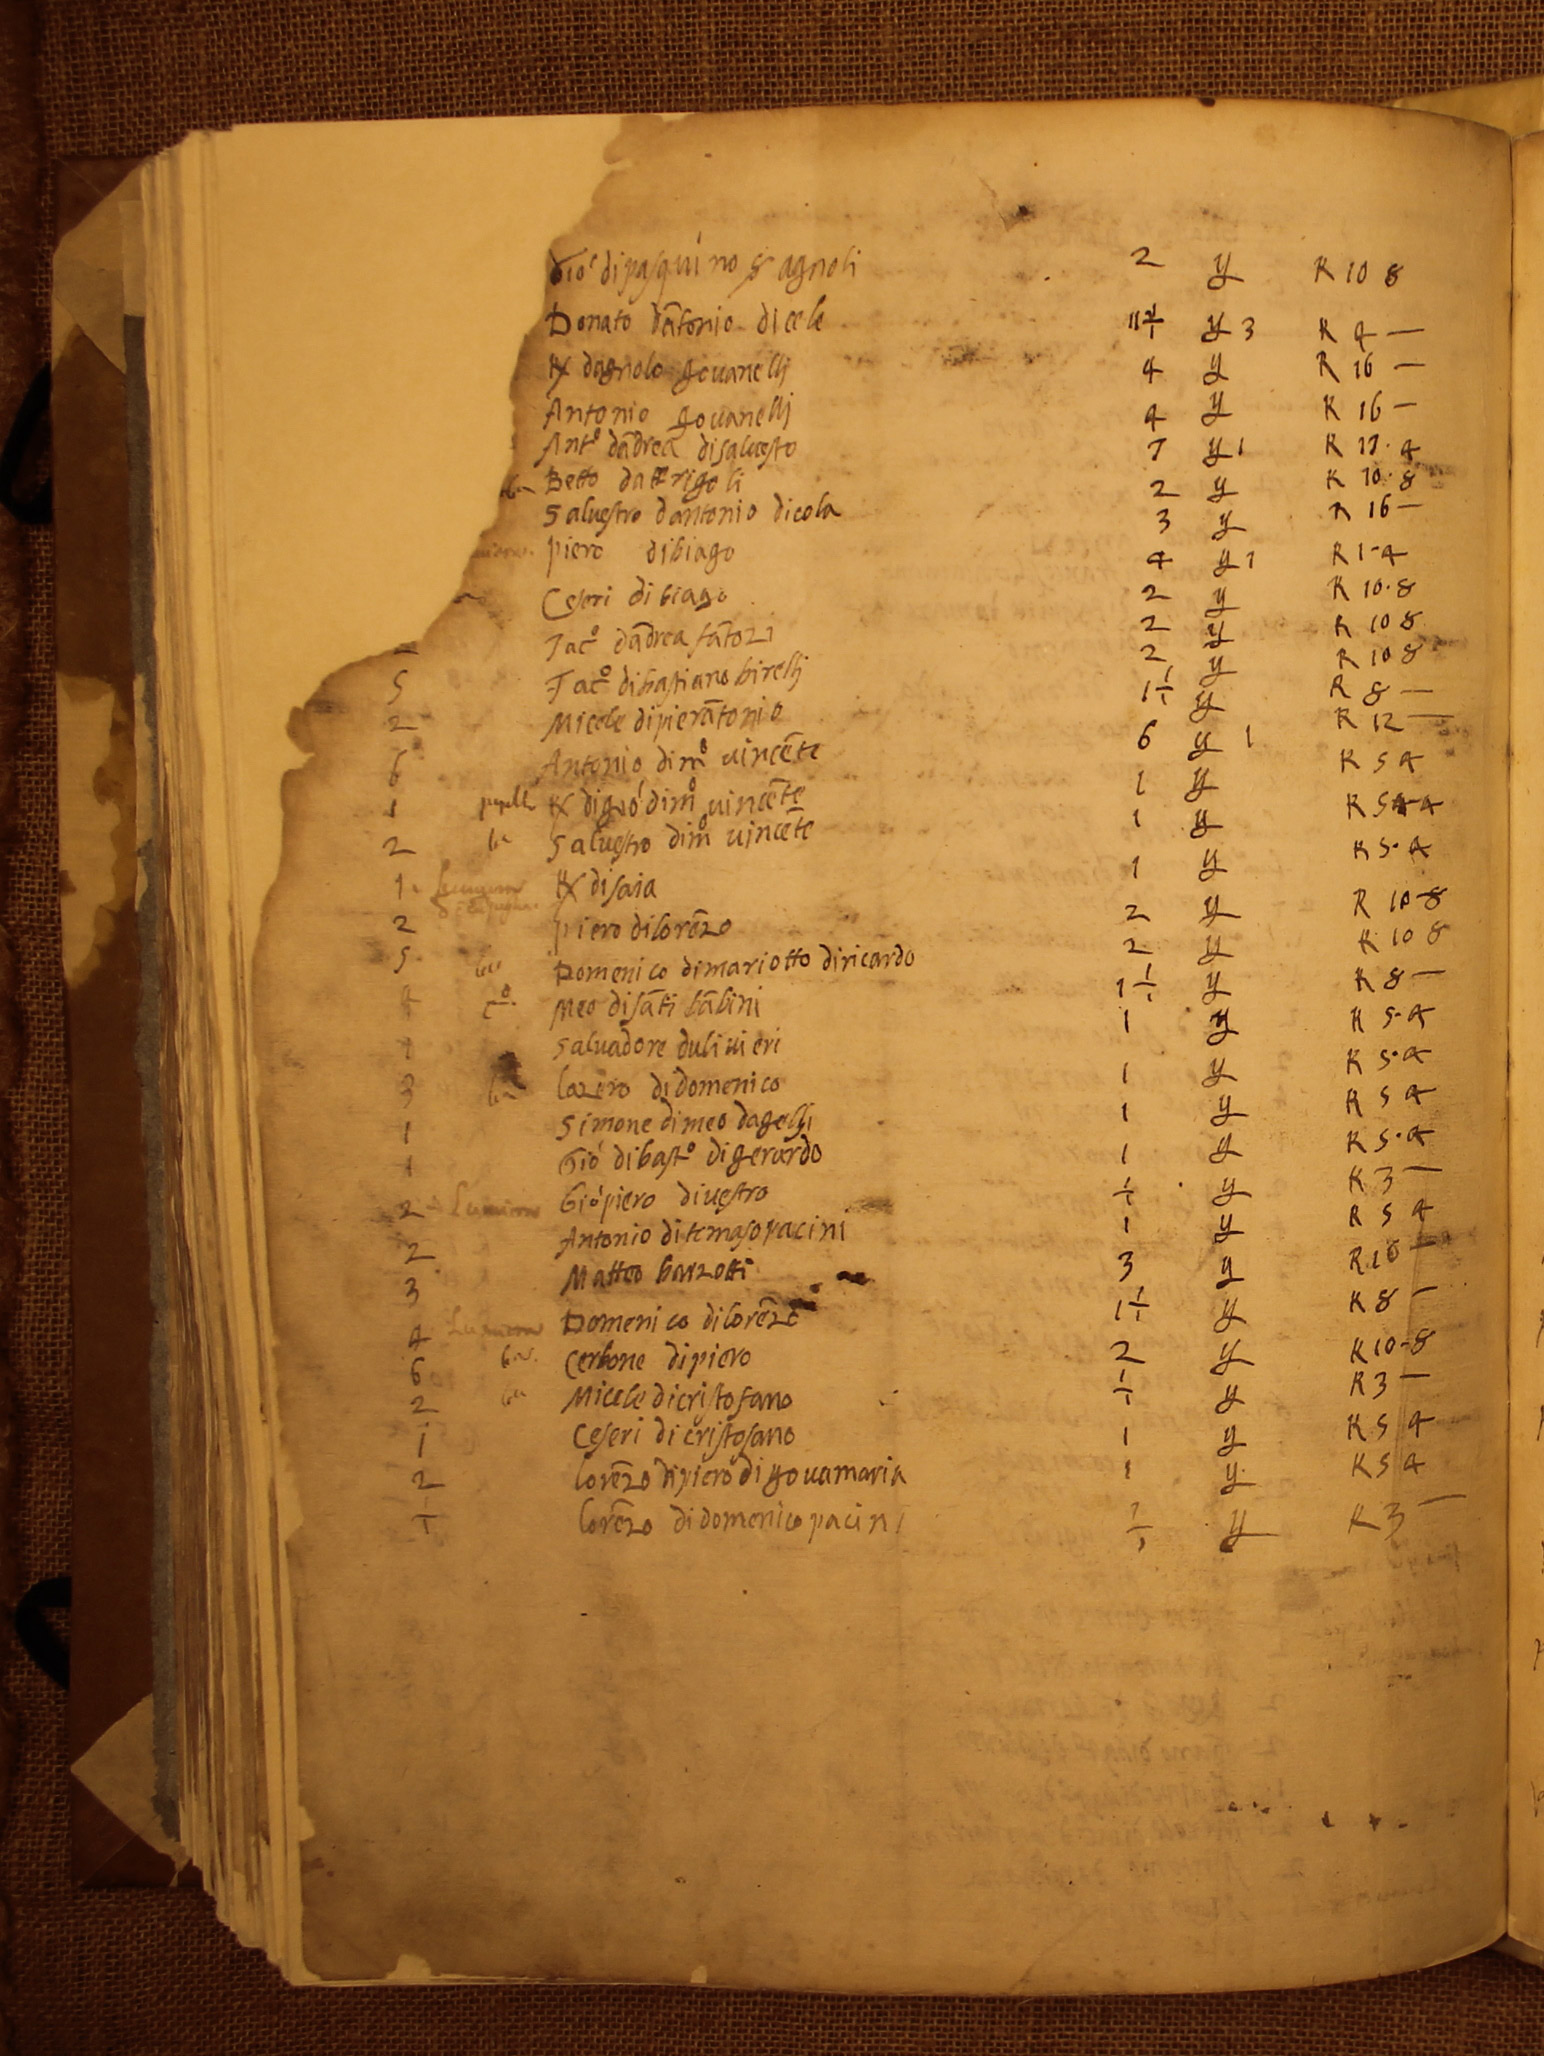 Gio' di pasquino d agnoli 2 y R 10 8
Donato d'ãtonio di cele y 3 R 4 —
RX dagnolo gouanellj 4 y R 16 —
Antonio gouanellj 4 y R 16 —
Antº dãdrea disaluesto 7 y 1 R 17·4
Betto datrigoli 2 y R 10·8
Saluestro dantonio dicola 3 y R 16 —
piero dibiago 4 y 1 R 1-4
Ceseri dibiago 2 y R 10·8
Jacº dãdrea fãtozi 2 y R 10 8
5 Jacº dibastiano birellj 2 y R 10 8
2 Micele dipierãtonio 1 1/1 y R 8 —
6 Antonio dimº uincẽte 6 y 1 R 12 —
1 pupillo RX digió dimº uincẽte 1 y R 5 4
2 Saluestro dimº uincẽte 1 y R 5 4
1 RX disaia 1 y R 5·4
2 piero dilorẽzo 2 y R 10-8
5 Domenico dimariotto diricardo 2 y R 10 8
4 Meo disãti bãbini 1 1/1 y R 8 —
1 Saluadore duliuieri 1 y R 5-4
3 lazero didomenico 1 y R 5·4
1 Simone dimeo dagellj 1 y R 5 4
1 Gió dibastº digerardo 1 y R 5·4
2 Giópiero diuestro 1/1 y R 3 —
2 Antonio ditomaso pacini 1 y R 5 4
3 Matteo barzotti 3 y R 16 —
4 Domenico dilorẽzo 1 1/1 y R 8 —
6 Cerbone dipiero 2 y R 10-8
2 Micele dicristofano 1/1 y R 3 —
1 Ceseri dicristofano 1 y R 5 4
2 lorẽzo dipiero digouamaria 1 y R 5 4
1/1 lorẽzo didomenico pacini 1/1 y R 3 —